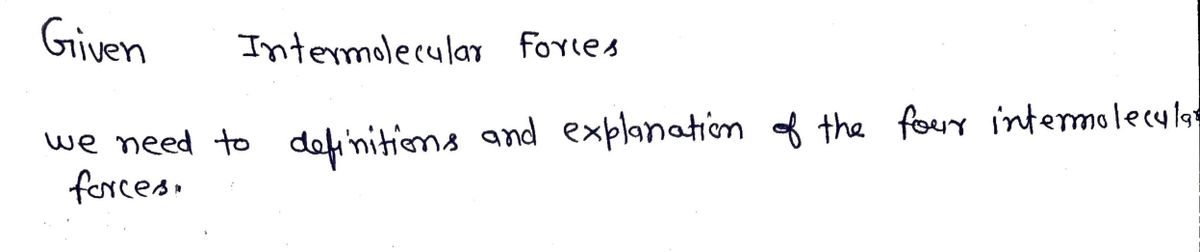 Given Intermolecular Forces
we need to definitions and explanation of the four intermolecular
forces.